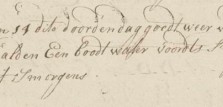 n 14 dito de oordendag goedt weer w
alden Een boodt water voordts
t Smorgens